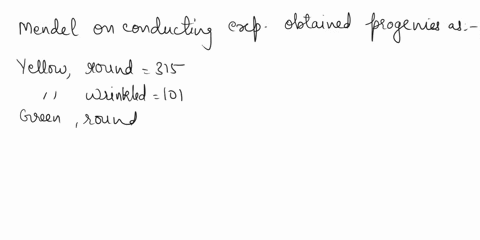 Mendel on conducting exp. obtained progenies as:-
Yellow, round = 315
,, wrinkled = 101
Green, round